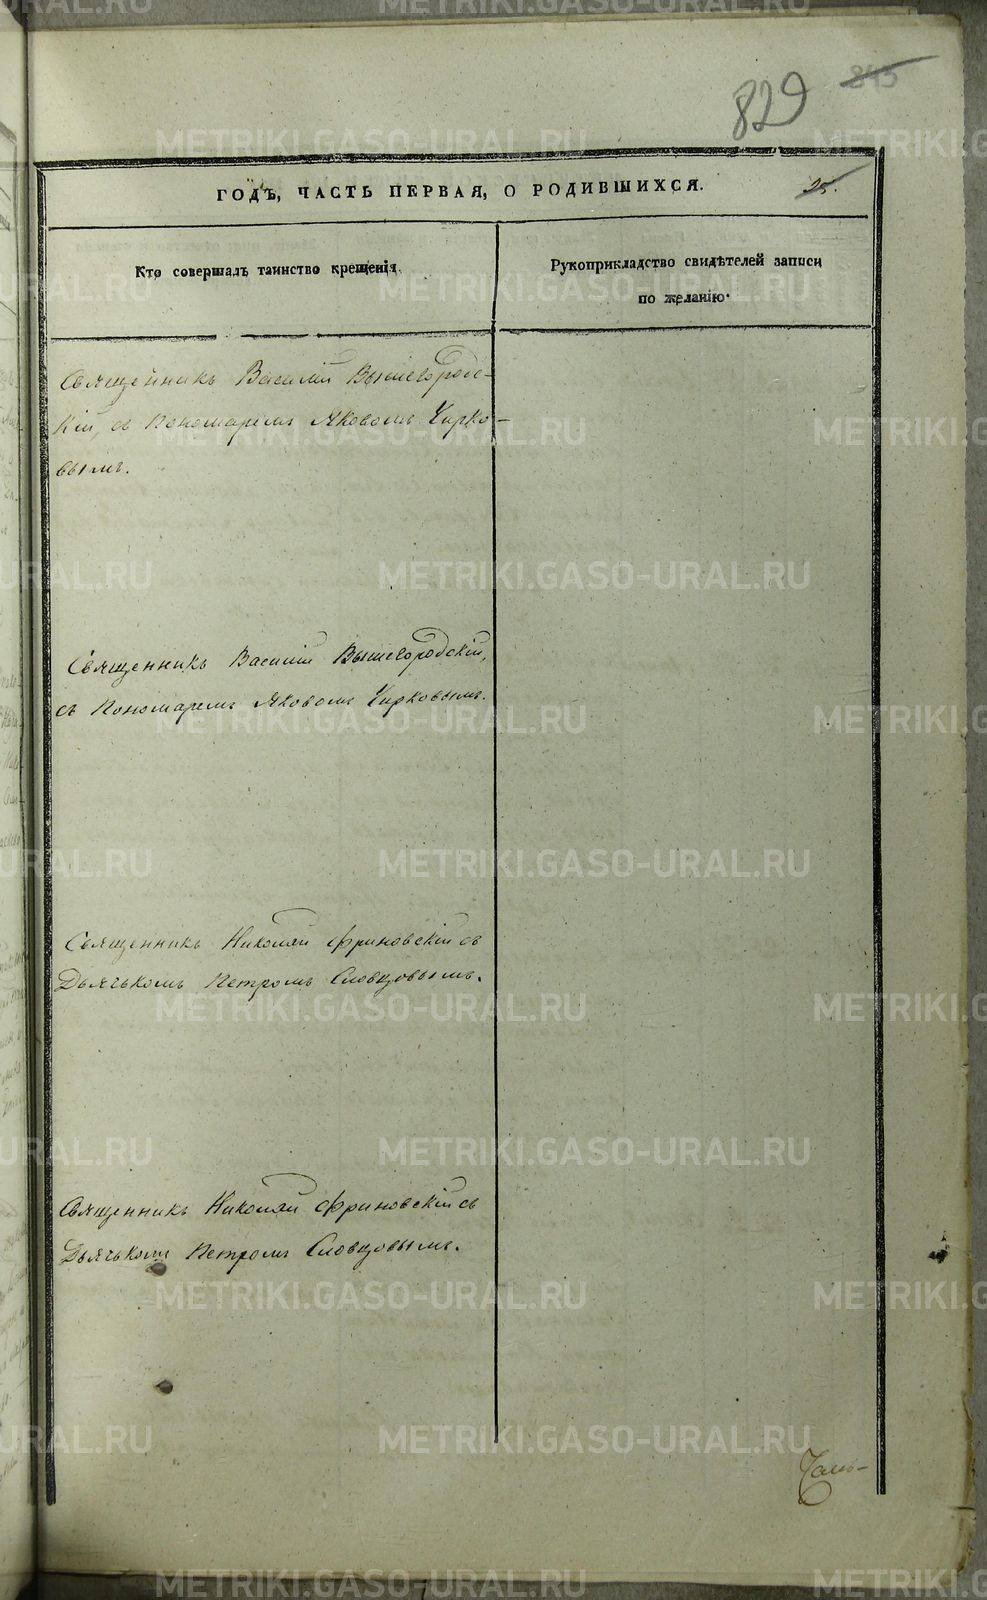 829 845
ГОДЪ, ЧАСТЬ ПЕРВАЯ, О РОДИВШИХСЯ. 25.
Кто совершалъ таинство крещенія.
Рукоприкладство свидѣтелей записи
по желанію.
Священникъ Василій Вышегородс-
кій, съ Пономаремъ Яковомъ Чирко-
вымъ.
Священникъ Василій Вышегородскій,
съ Пономаремъ Яковомъ Чирковымъ.
Священникъ Николай Фриновскій съ
Дьячькомъ Петромъ Словцовымъ.
Священникъ Николай Фриновскій съ
Дьячькомъ Петромъ Словцовымъ.
METRIKI.GASO-URAL.RU